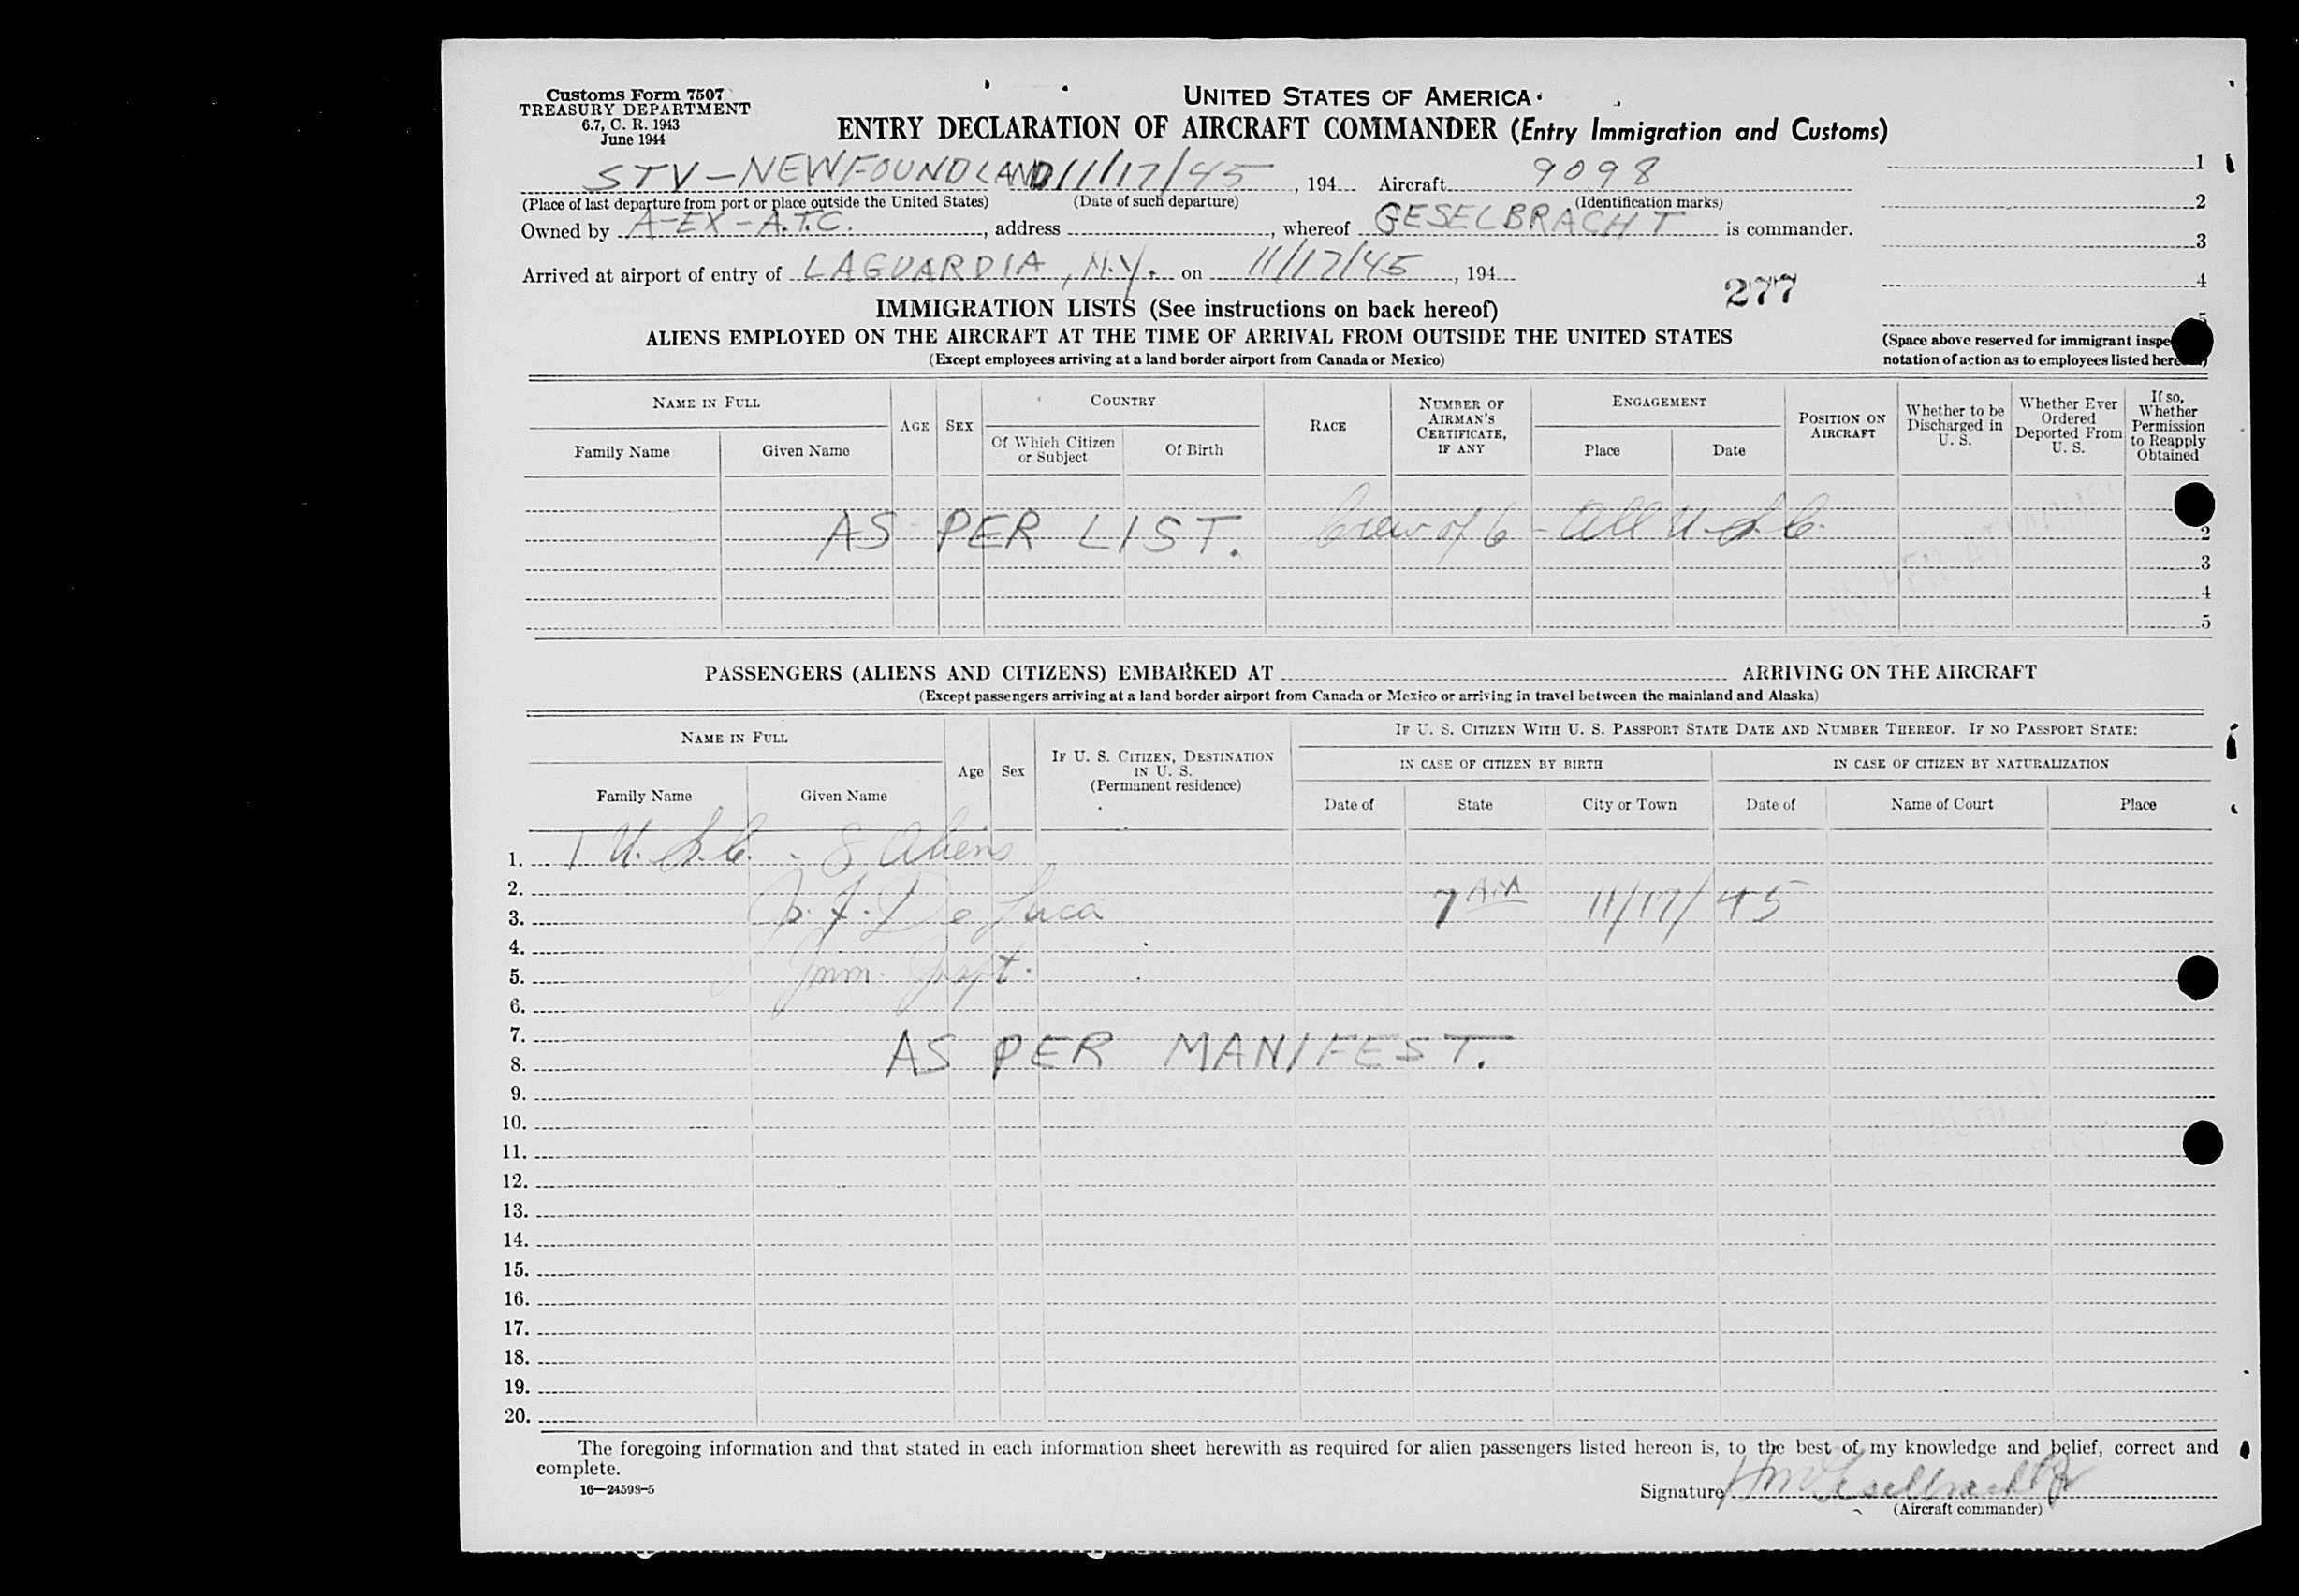 Customs Form 7507
TREASURY DEPARTMENT
6.7, C. R. 1943
June 1944
UNITED STATES OF AMERICA
ENTRY DECLARATION OF AIRCRAFT COMMANDER (Entry Immigration and Customs)
STV-NEWFOUNDLAND 11/17/45, 194 Aircraft 9098
(Place of last departure from port or place outside the United States) (Date of such departure) (Identification marks)
Owned by A-EX-A.T.C., address, whereof GESELBRACHT is commander.
Arrived at airport of entry of LAGUARDIA, N.Y. on 11/17/45, 194
1
2
3
4
5
277
IMMIGRATION LISTS (See instructions on back hereof)
ALIENS EMPLOYED ON THE AIRCRAFT AT THE TIME OF ARRIVAL FROM OUTSIDE THE UNITED STATES
(Except employees arriving at a land border airport from Canada or Mexico)
(Space above reserved for immigrant
notation of action as to employees listed
NAME IN FULL
Family Name Given Name
AGE SEX
COUNTRY
Of Which Citizen or Subject Of Birth
RACE
NUMBER OF AIRMAN'S CERTIFICATE, IF ANY
ENGAGEMENT
Place Date
POSITION ON AIRCRAFT
Whether to be Discharged in U. S.
Whether Ever Ordered Deported From U. S.
If so, Whether Permission to Reapply Obtained
AS PER LIST. Crew of 6 - All U.S.C.
2
3
4
5
PASSENGERS (ALIENS AND CITIZENS) EMBARKED AT ARRIVING ON THE AIRCRAFT
(Except passengers arriving at a land border airport from Canada or Mexico or arriving in travel between the mainland and Alaska)
NAME IN FULL
Family Name Given Name
Age Sex
IF U. S. CITIZEN, DESTINATION IN U. S.
(Permanent residence)
IF U. S. CITIZEN WITH U. S. PASSPORT STATE DATE AND NUMBER THEREOF. IF NO PASSPORT STATE:
IN CASE OF CITIZEN BY BIRTH IN CASE OF CITIZEN BY NATURALIZATION
Date of State City or Town Date of Name of Court Place
1. 1 U.S.C. - 8 Aliens
2.
3. J. F. De Luca 7 AM 11/17/45
4.
5. Imm. Inspt.
6.
7.
8. AS PER MANIFEST.
9.
10.
11.
12.
13.
14.
15.
16.
17.
18.
19.
20.
The foregoing information and that stated in each information sheet herewith as required for alien passengers listed hereon is, to the best of my knowledge and belief, correct and
complete.
16—24598-5
Signature HM Geselbracht Jr
(Aircraft commander)